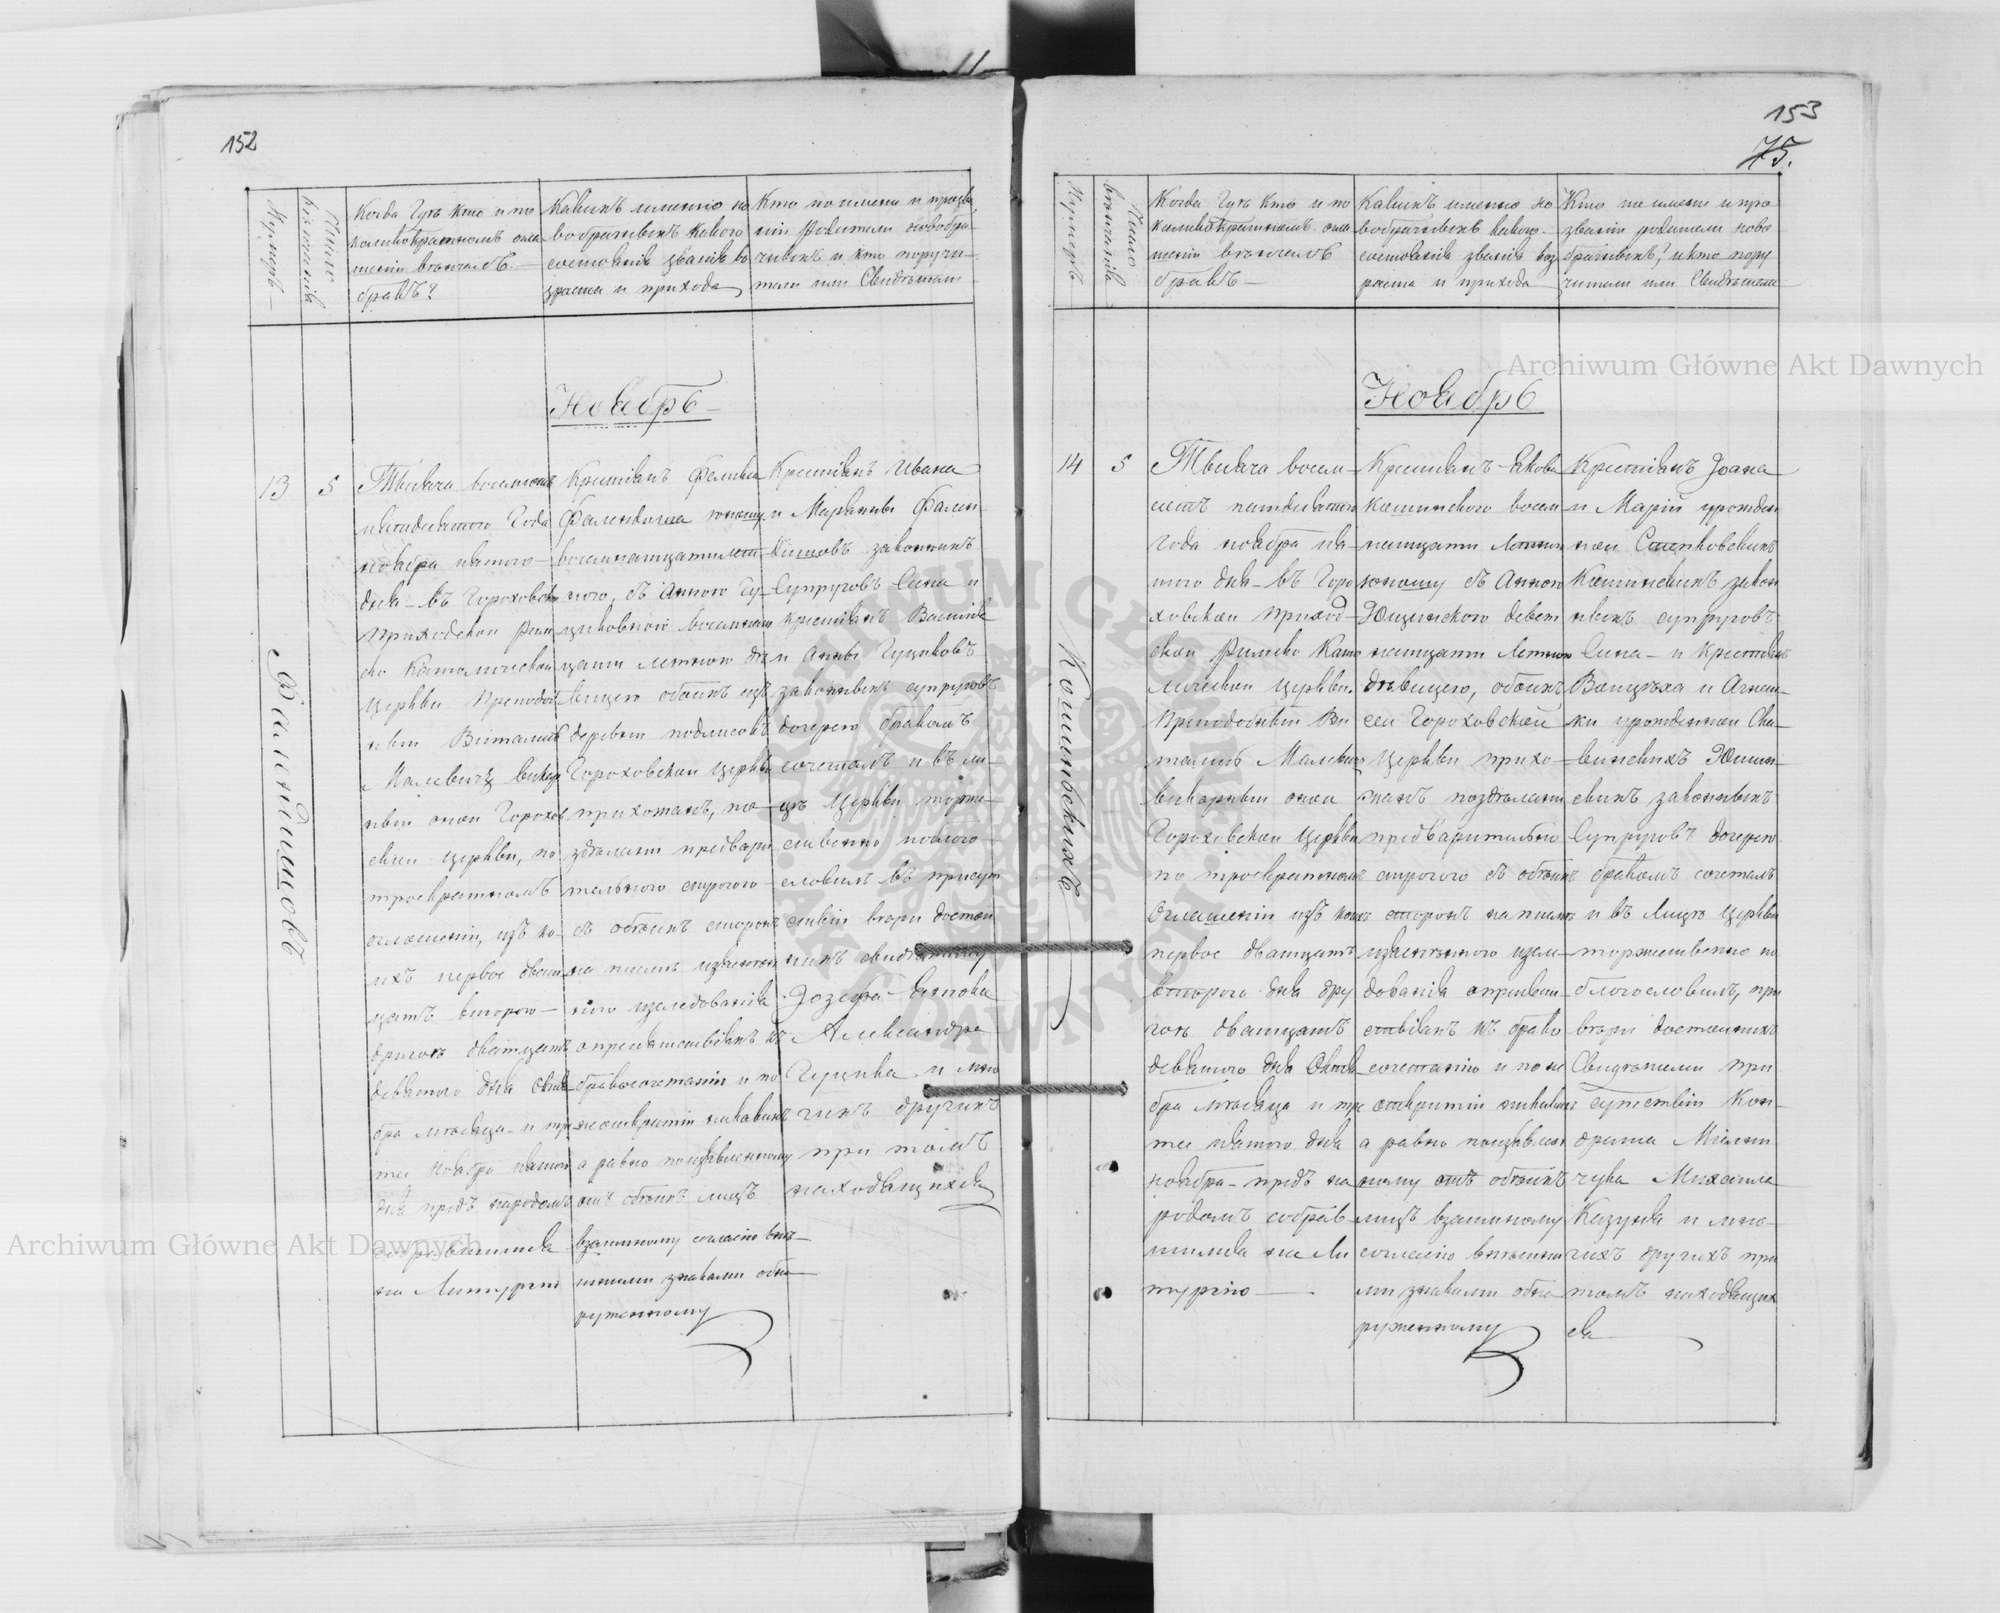 152
Нумеръ
Число
вѣнчанія
Когда Гдѣ кто и по
коликократномъ огла
шеніи вѣнчалъ
бракъ?
Какихъ именно но
вобрачныхъ какого
состоянія званія во
зраста и прихода
Кто по имени и прозва
нію Родители новобра
чныхъ и кто поручи
тели или Свидѣтели
Ноябрь
13
5
Фалендишовъ
Тысяча восемсотъ
пятидесятого Года
ноября пятого
дня въ Гороховской
Приходской Рим
ско Католической
Церкви Преподоб
ный Виталисъ
Малевичъ викар
ный оной Горохов
ской Церкви, по
троекратномъ
оглашеніи, изъ ко
ихъ первое двад
цать второго
другое двадцать
девятого дня Октя
бря мѣсяца и тре
тее Ноября пятого
дня предъ народомъ
собравшимся
на Литургію
Крестьянъ Феликса
Фалендиша юношу
восемнатцатилет
ного, съ Анною Гу
циковною восемнат
цати летною дѣ
вицею обоихъ изъ
деревни подлисовъ
Гороховской Церкви
прихожанъ, по
здѣланіи предвари
тельного строгого
съ обоихъ сторонъ
на письмѣ изъясне
нного изследованія
о препятствіяхъ къ
бракосочетанію и по
неоткрытіи никакихъ
а равно поизъявленному
отъ обоихъ лицъ
взаимному согласію внѣ
шними знаками обна
руженному
Крестьянъ Ивана
и Маріанны Фален
дишовъ законныхъ
Супруговъ Сына и
крестьянъ Василія
и Анны Гуциковъ
законныхъ супруговъ
дочерею бракомъ
сочеталъ и въ ли
цѣ Церкви торже
ственно поблаго
словилъ въ присут
ствіи вѣры достой
ныхъ свидѣтелей
Іозефа
Александра
Гуцика и мно
гихъ другихъ
при томъ
находящихся
153
75.
Нумеръ
Число
вѣнчанія
Когда Гдѣ кто и по
коликократномъ огла
шеніи вѣнчалъ
бракъ
Какихъ именно но
вобрачныхъ какого
состоянія званія воз
раста и прихода
Кто по имени и про
званію родители ново
брачныхъ? и кто пору
чители или Свидѣтели
Ноябрь
14
5
Кошинскихъ
Тысяча восем
сотъ пятидесятого
года ноября пя
того дня въ Горо
ховской Приход
ской Римско Като
лической Церкви
Преподобный Ви
талисъ Малевичъ
викарный оной
Гороховской Церкви
по троекратномъ
Оглашеніи изъ коихъ
первое двадцать
второго дня дру
гое двадцать
девятого дня Октя
бря мѣсяца и тре
тее пятого дня
ноября предъ на
родомъ собрав
шимся на Ли
тургію
Крестьянъ Якова
Кошинского восем
натцати Летнего
юношу съ Анною
девят
натцати Летною
дѣвицею, обоихъ
сей Гороховской
Церкви прихо
жанъ поздѣланіи
предварительно
строгого съ обоихъ
сторонъ на письмѣ
изъясненного изсле
дованія о препят
ствіяхъ къ брако
сочетанію и по не
открытіи никакихъ
а равно поизъявлен
ному отъ обоихъ
лицъ взаимному
согласію внѣшни
ми знаками обна
руженному
Крестьянъ Іоана
и Маріи урожден
ной
Кошинскихъ закон
ныхъ супруговъ
Сына и Крестьянъ
Войцѣха и Агнеш
ки урожденной
законныхъ
Супруговъ дочерею
бракомъ сочеталъ
и въ Лицѣ Церкви
торжественно по
благословилъ, при
вѣры достойныхъ
Свидѣтелей при
сутствіи Кон
драта
Михаила
Казуна и мно
гихъ другихъ при
томъ находящих
ся
Archiwum Główne Akt Dawnych
Archiwum Główne Akt Dawnych